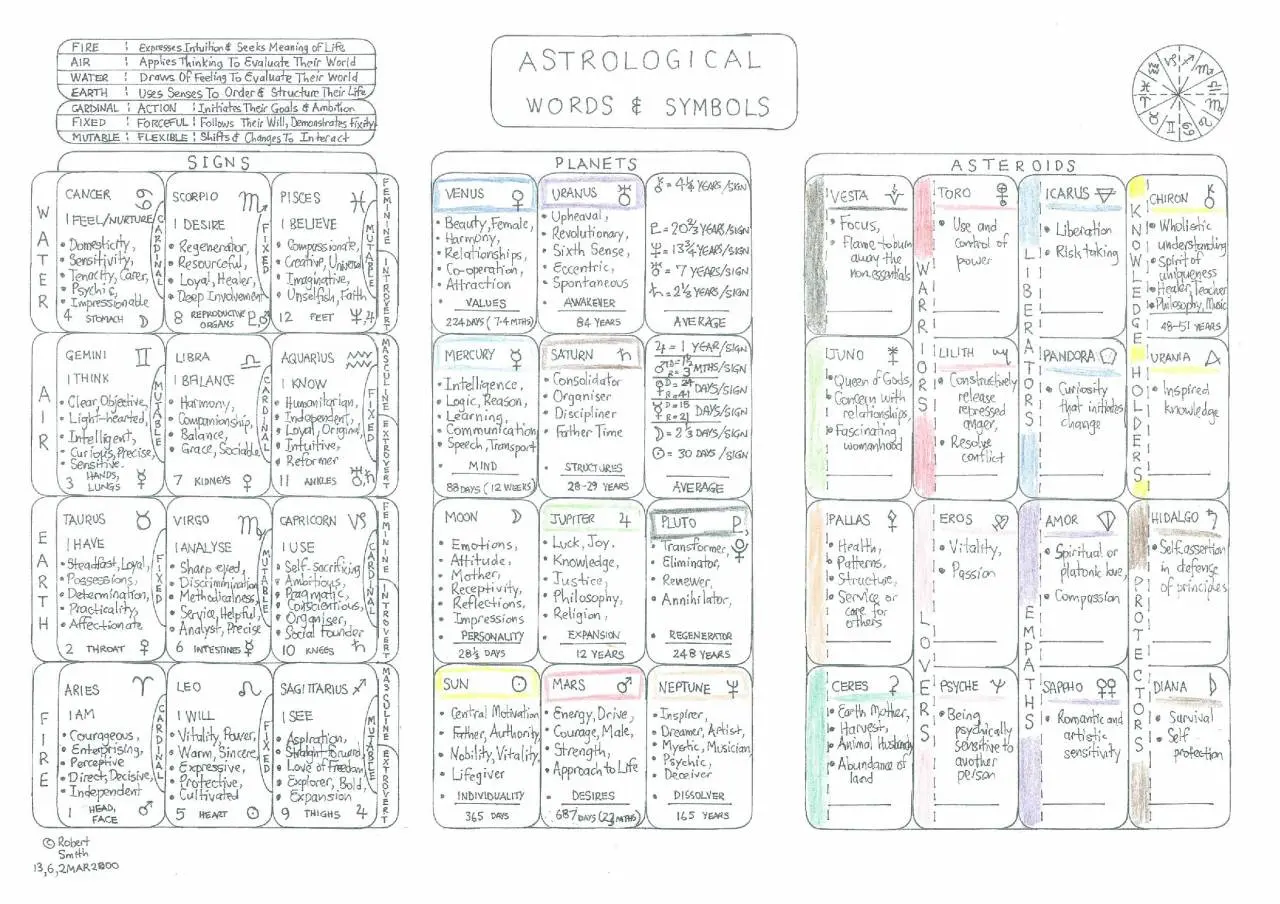 FIRE Expresses Intuition & Seeks Meaning of Life
AIR Applies Thinking To Evaluate Their World
WATER Draws Of Feeling To Evaluate Their World
EARTH Uses Senses To Order & Structure Their Life
CARDINAL ACTION Initiates Their Goals & Ambition
FIXED FORCEFUL Follows Their Will, Demonstrates Fixity
MUTABLE FLEXIBLE Shifts & Changes To Interact
ASTROLOGICAL
WORDS & SYMBOLS
SIGNS
WATER
CANCER ♋
I FEEL/NURTURE
• Domesticity,
• Sensitivity,
• Tenacity, Carer,
• Psychic,
• Impressionable
4 STOMACH ☽
CARDINAL
SCORPIO ♏
I DESIRE
• Regenerator,
• Resourceful,
• Loyal, Healer,
• Deep Involvement
8 REPRODUCTIVE ORGANS ♇,♂
FIXED
PISCES ♓
I BELIEVE
• Compassionate,
• Creative, Universal
• Imaginative,
• Unselfish, Faith
12 FEET ♆,♃
MUTABLE
FEMININE
INTROVERT
AIR
GEMINI ♊
I THINK
• Clear, Objective,
• Light-hearted,
• Intelligent,
• Curious, Precise,
• Sensitive.
3 HANDS, LUNGS ☿
MUTABLE
LIBRA ♎
I BALANCE
• Harmony,
• Companionship,
• Balance,
• Grace, Sociable
7 KIDNEYS ♀
CARDINAL
AQUARIUS ♒
I KNOW
• Humanitarian,
• Independent,
• Loyal, Original,
• Intuitive,
• Reformer
11 ANKLES ♅,♄
FIXED
MASCULINE
EXTROVERT
EARTH
TAURUS ♉
I HAVE
• Steadfast, Loyal,
• Possessions,
• Determination,
• Practicality,
• Affectionate
2 THROAT ♀
FIXED
VIRGO ♍
I ANALYSE
• Sharp eyed,
• Discrimination
• Methodicalness,
• Service, Helpful,
• Analyst, Precise
6 INTESTINES ☿
MUTABLE
CAPRICORN ♑
I USE
• Self-Sacrificing
• Ambitious,
• Pragmatic,
• Conscientious,
• Organiser,
• Social founder
10 KNEES ♄
CARDINAL
FEMININE
INTROVERT
FIRE
ARIES ♈
I AM
• Courageous,
• Enterprising,
• Perceptive
• Direct, Decisive,
• Independent
1 HEAD, FACE ♂
CARDINAL
LEO ♌
I WILL
• Vitality, Power,
• Warm, Sincere,
• Expressive,
• Protective,
• Cultivated
5 HEART ☉
FIXED
SAGITTARIUS ♐
I SEE
• Aspiration,
• Straight forward,
• Love of Freedom
• Explorer, Bold,
• Expansion
9 THIGHS ♃
MUTABLE
MASCULINE
EXTROVERT
© Robert
Smith
13,6,2MAR2000
PLANETS
VENUS ♀
• Beauty, Female,
• Harmony,
• Relationships,
• Co-operation,
• Attraction
VALUES
224 DAYS (7.4 MTHS)
URANUS ♅
• Upheaval,
• Revolutionary,
• Sixth Sense,
• Eccentric,
• Spontaneous
AWAKENER
84 YEARS
⚷ = 4¼ YEARS/SIGN
♇ = 20⅔ YEARS/SIGN
♆ = 13¾ YEARS/SIGN
♅ = 7 YEARS/SIGN
♄ = 2⅓ YEARS/SIGN
AVERAGE
MERCURY ☿
• Intelligence,
• Logic, Reason,
• Learning,
• Communication
• Speech, Transport
MIND
88 DAYS (12 WEEKS)
SATURN ♄
• Consolidator
• Organiser
• Discipliner
• Father Time
STRUCTURES
28-29 YEARS
♃ = 1 YEAR/SIGN
MTHS/SIGN
DAYS/SIGN
DAYS/SIGN
☽ = 2⅓ DAYS/SIGN
☉ = 30 DAYS/SIGN
AVERAGE
MOON ☽
• Emotions,
• Attitude,
• Mother,
• Receptivity,
• Reflections,
• Impressions
PERSONALITY
28½ DAYS
JUPITER ♃
• Luck, Joy.
• Knowledge,
• Justice,
• Philosophy,
• Religion,
•
EXPANSION
12 YEARS
PLUTO ♇,
• Transformer,
• Eliminator,
• Renewer,
• Annihilator,
•
REGENERATOR
248 YEARS
SUN ☉
• Central Motivation
• Father, Authority
• Nobility, Vitality,
• Lifegiver
INDIVIDUALITY
365 DAYS
MARS ♂
• Energy, Drive,
• Courage, Male,
• Strength,
• Approach to Life
DESIRES
687 DAYS (23 MTHS)
NEPTUNE ♆
• Inspirer,
• Dreamer, Artist,
• Mystic, Musician
• Psychic,
• Deceiver
DISSOLVER
165 YEARS
ASTEROIDS
VESTA
• Focus,
• Flame to burn
away the
non essentials
TORO
• Use and
control of
power
ICARUS
• Liberation
• Risk taking
CHIRON ⚷
• Wholistic
understanding
• Spirit of
uniqueness
• Healer, Teacher
• Philosophy, Music
48-51 YEARS
JUNO
• Queen of Gods,
• Concern with
relationships,
• Fascinating
womanhood
LILITH
• Constructively
release
repressed
anger,
• Resolve
conflict
PANDORA
• Curiosity
that initiates
change
URANIA
• Inspired
knowledge
WARRIORS
LIBERATORS
KNOWLEDGE HOLDERS
PALLAS
• Health,
• Patterns,
• Structure,
• Service or
care for
others
EROS
• Vitality,
• Passion
AMOR
• Spiritual or
platonic love,
• Compassion
HIDALGO
• Self assertion
in defence
of principles
CERES
• Earth Mother,
• Harvest,
• Animal Husbandry
• Abundance of
land
PSYCHE
• Being
psychically
sensitive to
another
person
SAPPHO
• Romantic and
artistic
sensitivity
DIANA
• Survival
• Self
protection
LOVERS
EMPATHS
PROTECTORS